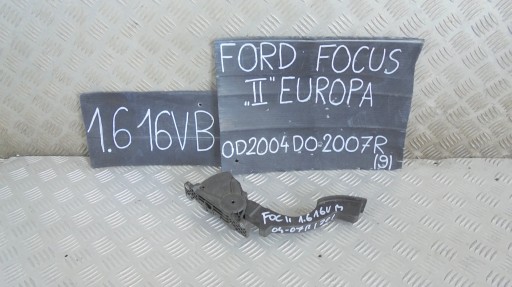 FORD FOCUS
„II" EUROPA
OD2004DO2007R
(9)
1.6 16VB
FOC II 1.6 16V M
04-07R